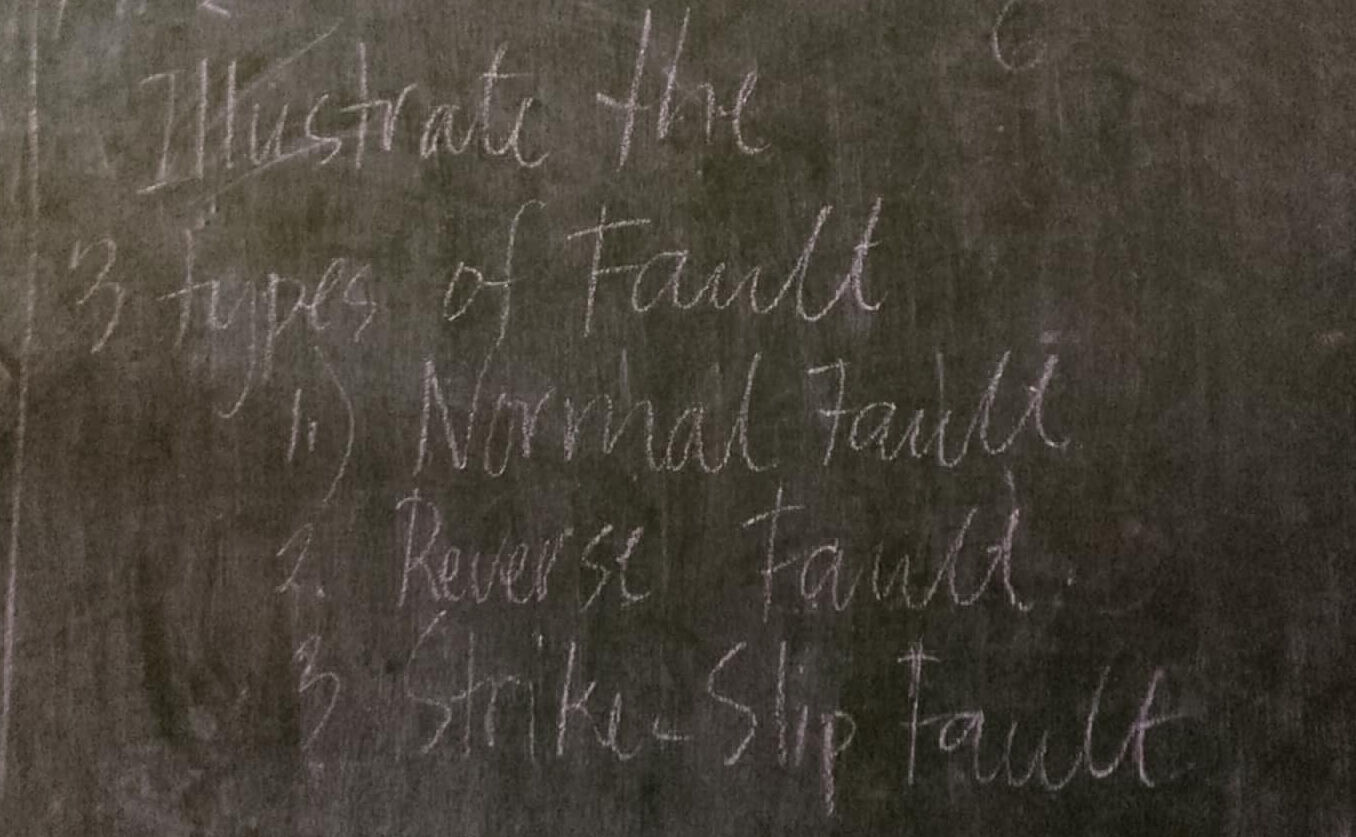 Illustrate the
3 types of Fault
1.) Normal Fault
2. Reverse Fault.
3 Strike-Slip Fault